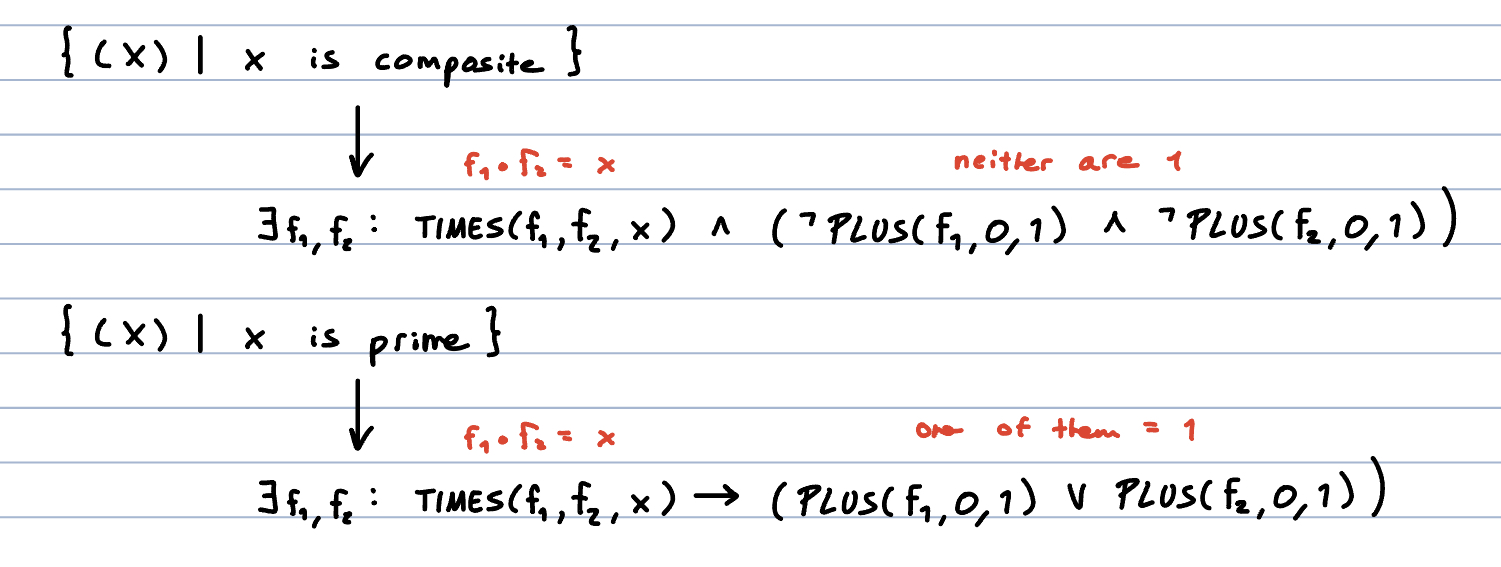 { (x) | x is composite }
↓
f₁ • f₂ = x neither are 1
∃ f₁, f₂ : TIMES(f₁, f₂, x) ∧ (¬PLUS(f₁, 0, 1) ∧ ¬PLUS(f₂, 0, 1))
{ (x) | x is prime }
↓
f₁ • f₂ = x one of them = 1
∃ f₁, f₂ : TIMES(f₁, f₂, x) → (PLUS(f₁, 0, 1) ∨ PLUS(f₂, 0, 1))